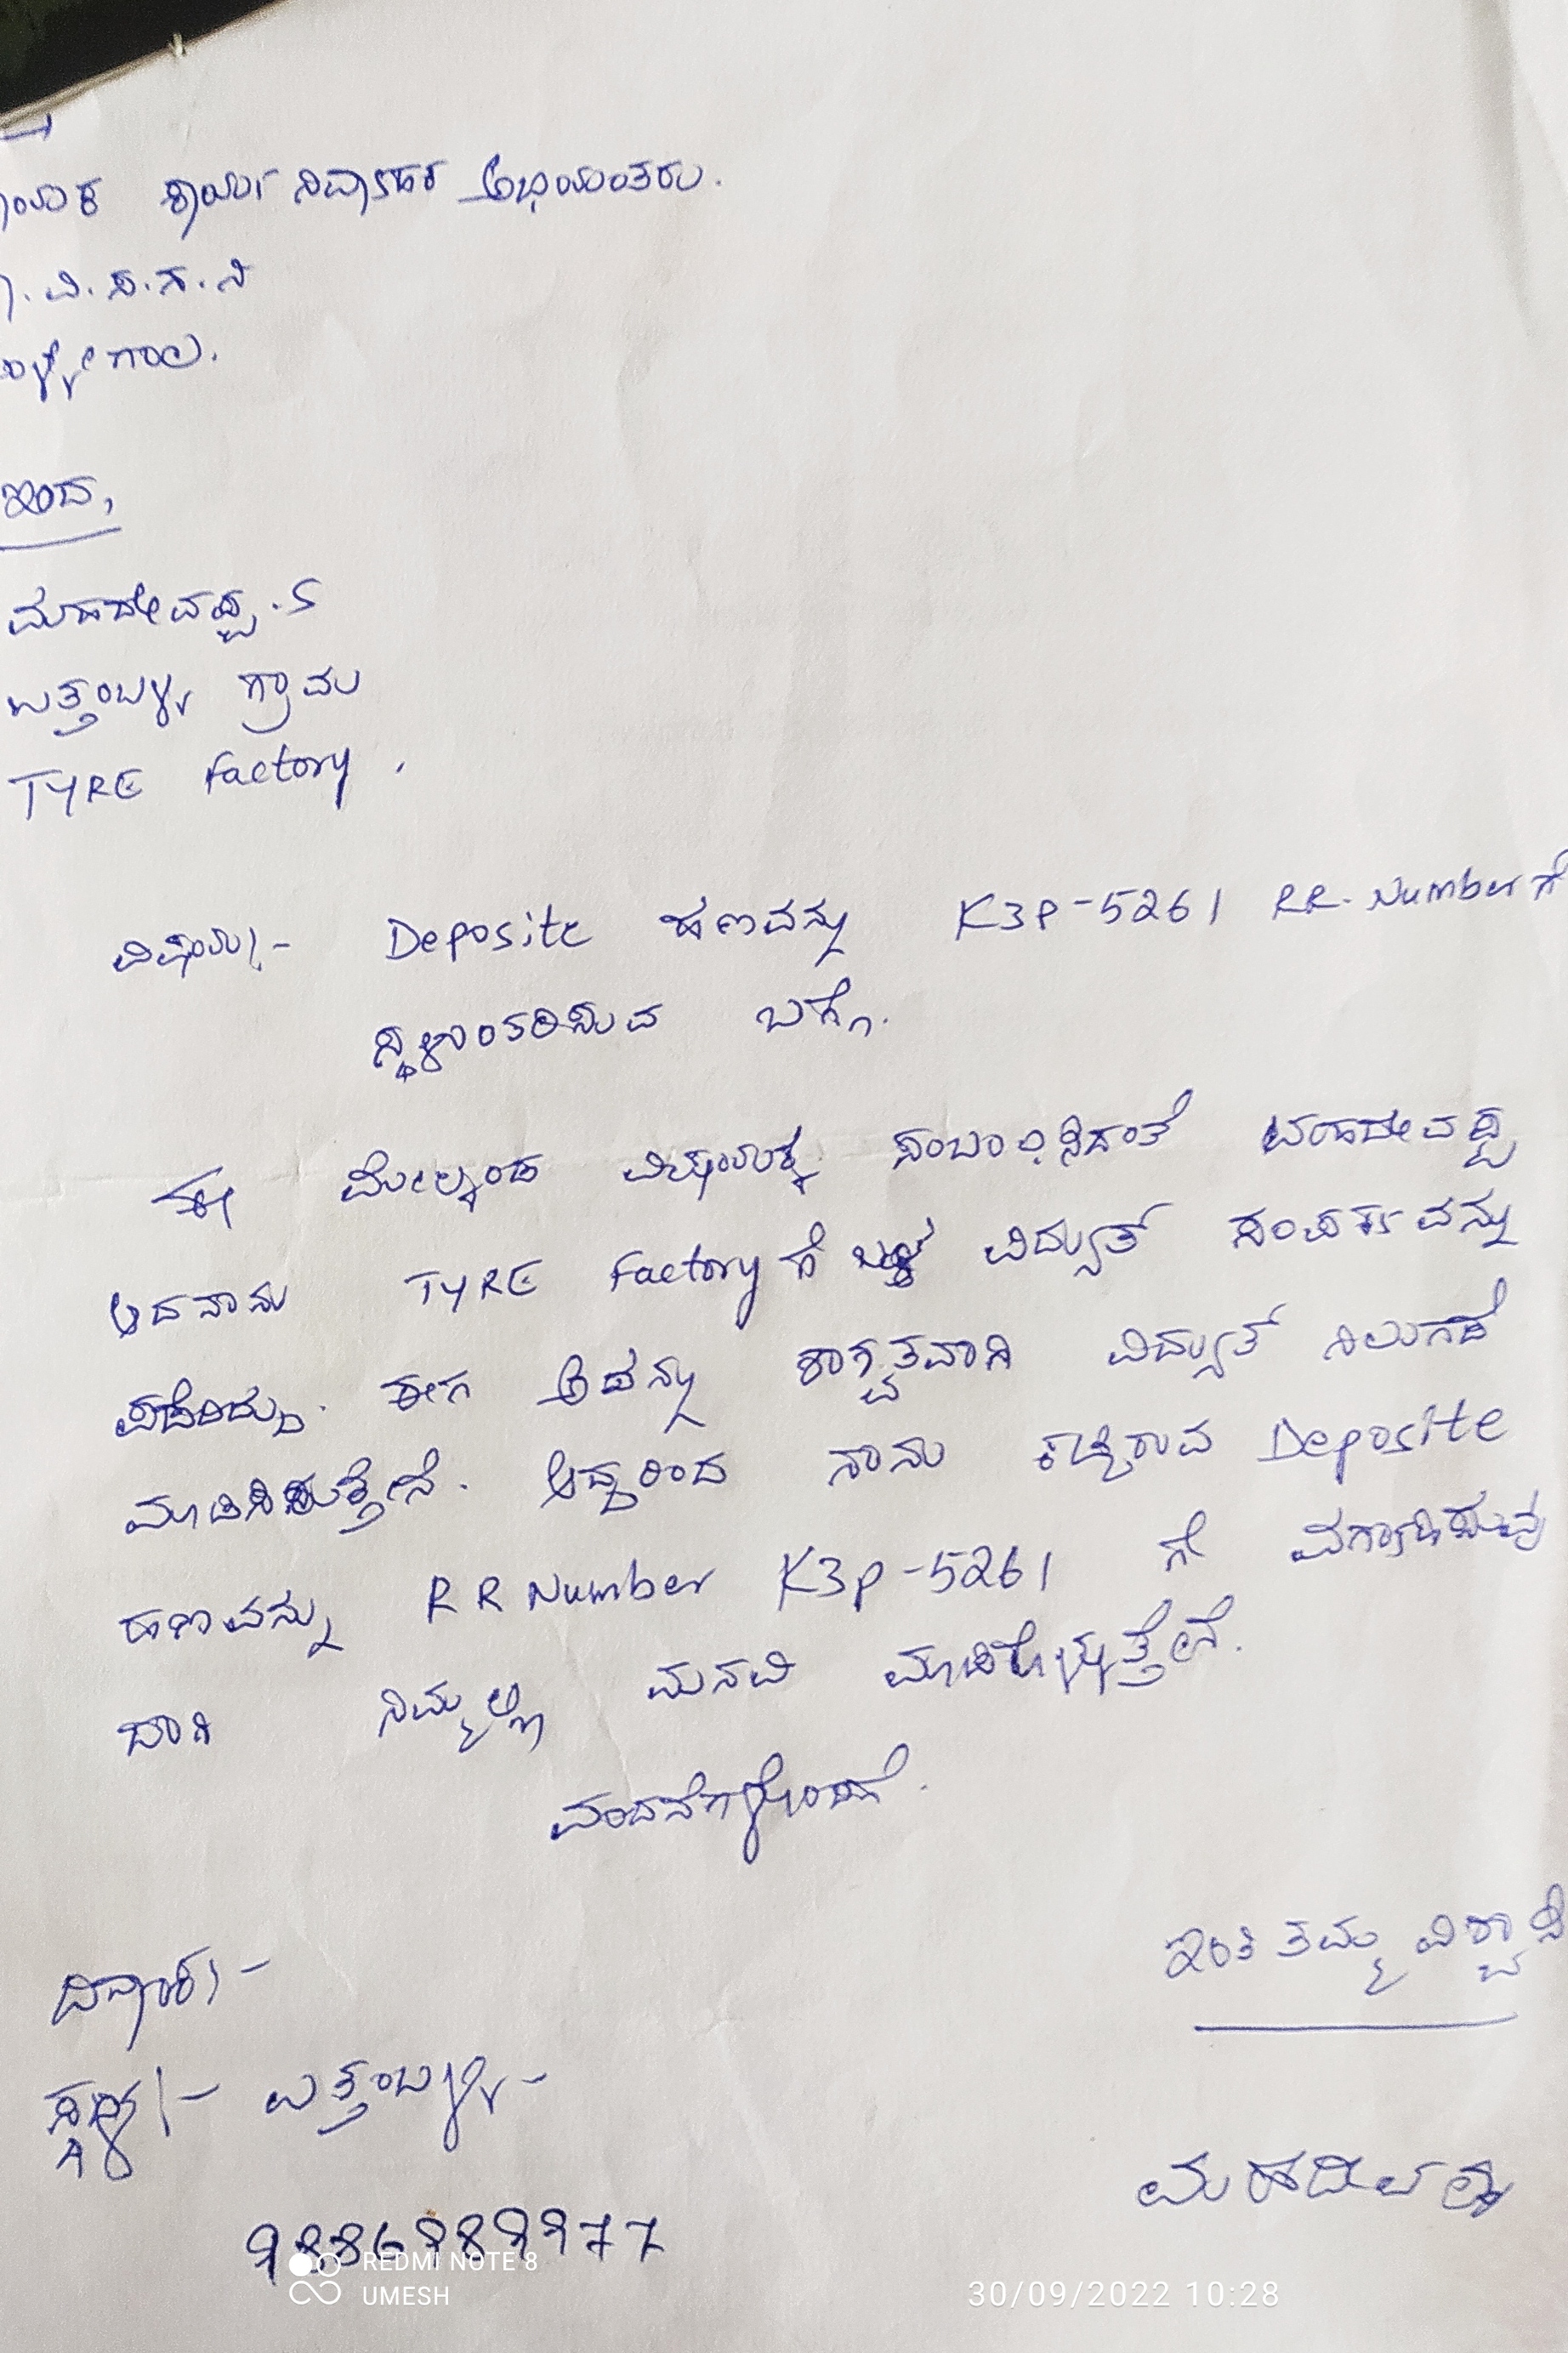 ಕಾರ್ಯ ನಿರ್ವಾಹಕ ಅಭಿಯಂತರು.
ವಿ.ಸ.ಸ.ನಿ
ಇಂದ,
ಮಹದೇವಪ್ಪ.S
ಉತ್ತಂಬಳ್ಳಿ ಗ್ರಾಮ
TYRE factory,
ವಿಷಯ:- Deposite ಹಣವನ್ನು K3P-5261 RR. Numberಗೆ
ಸ್ಥಳಾಂತರಿಸುವ ಬಗ್ಗೆ.
ಈ ಮೇಲ್ಕಂಡ ವಿಷಯಕ್ಕೆ ಸಂಬಂಧಿಸಿದಂತೆ ಮಹದೇವಪ್ಪ
ಆದ ನಾನು TYRE factory ಗೆ ವಿದ್ಯುತ್ ಸಂಪರ್ಕವನ್ನು
ಪಡೆದಿದ್ದು. ಈಗ ಅದನ್ನು ಶಾಶ್ವತವಾಗಿ ವಿದ್ಯುತ್ ನಿಲುಗಡೆ
ಮಾಡಿಸಿರುತ್ತೇನೆ. ಆದ್ದರಿಂದ ನಾನು ಕಟ್ಟಿರುವ Deposite
ಹಣವನ್ನು RR Number K3P-5261 ಗೆ ವರ್ಗಾಹಿಸುವು
ದಾಗಿ ನಿಮ್ಮಲ್ಲಿ ಮನವಿ ಮಾಡಿಕೊಳ್ಳುತ್ತೇನೆ.
ವಂದನೆಗಳೊಂದಿಗೆ.
ಇಂತಿ ತಮ್ಮ ವಿಶ್ವಾಸಿ
ದಿನಾಂಕ:-
ಸ್ಥಳ:- ಉತ್ತಂಬಳ್ಳಿ-
ಮಹದೇವಪ್ಪ
REDMI NOTE 8
UMESH
30/09/2022 10:28